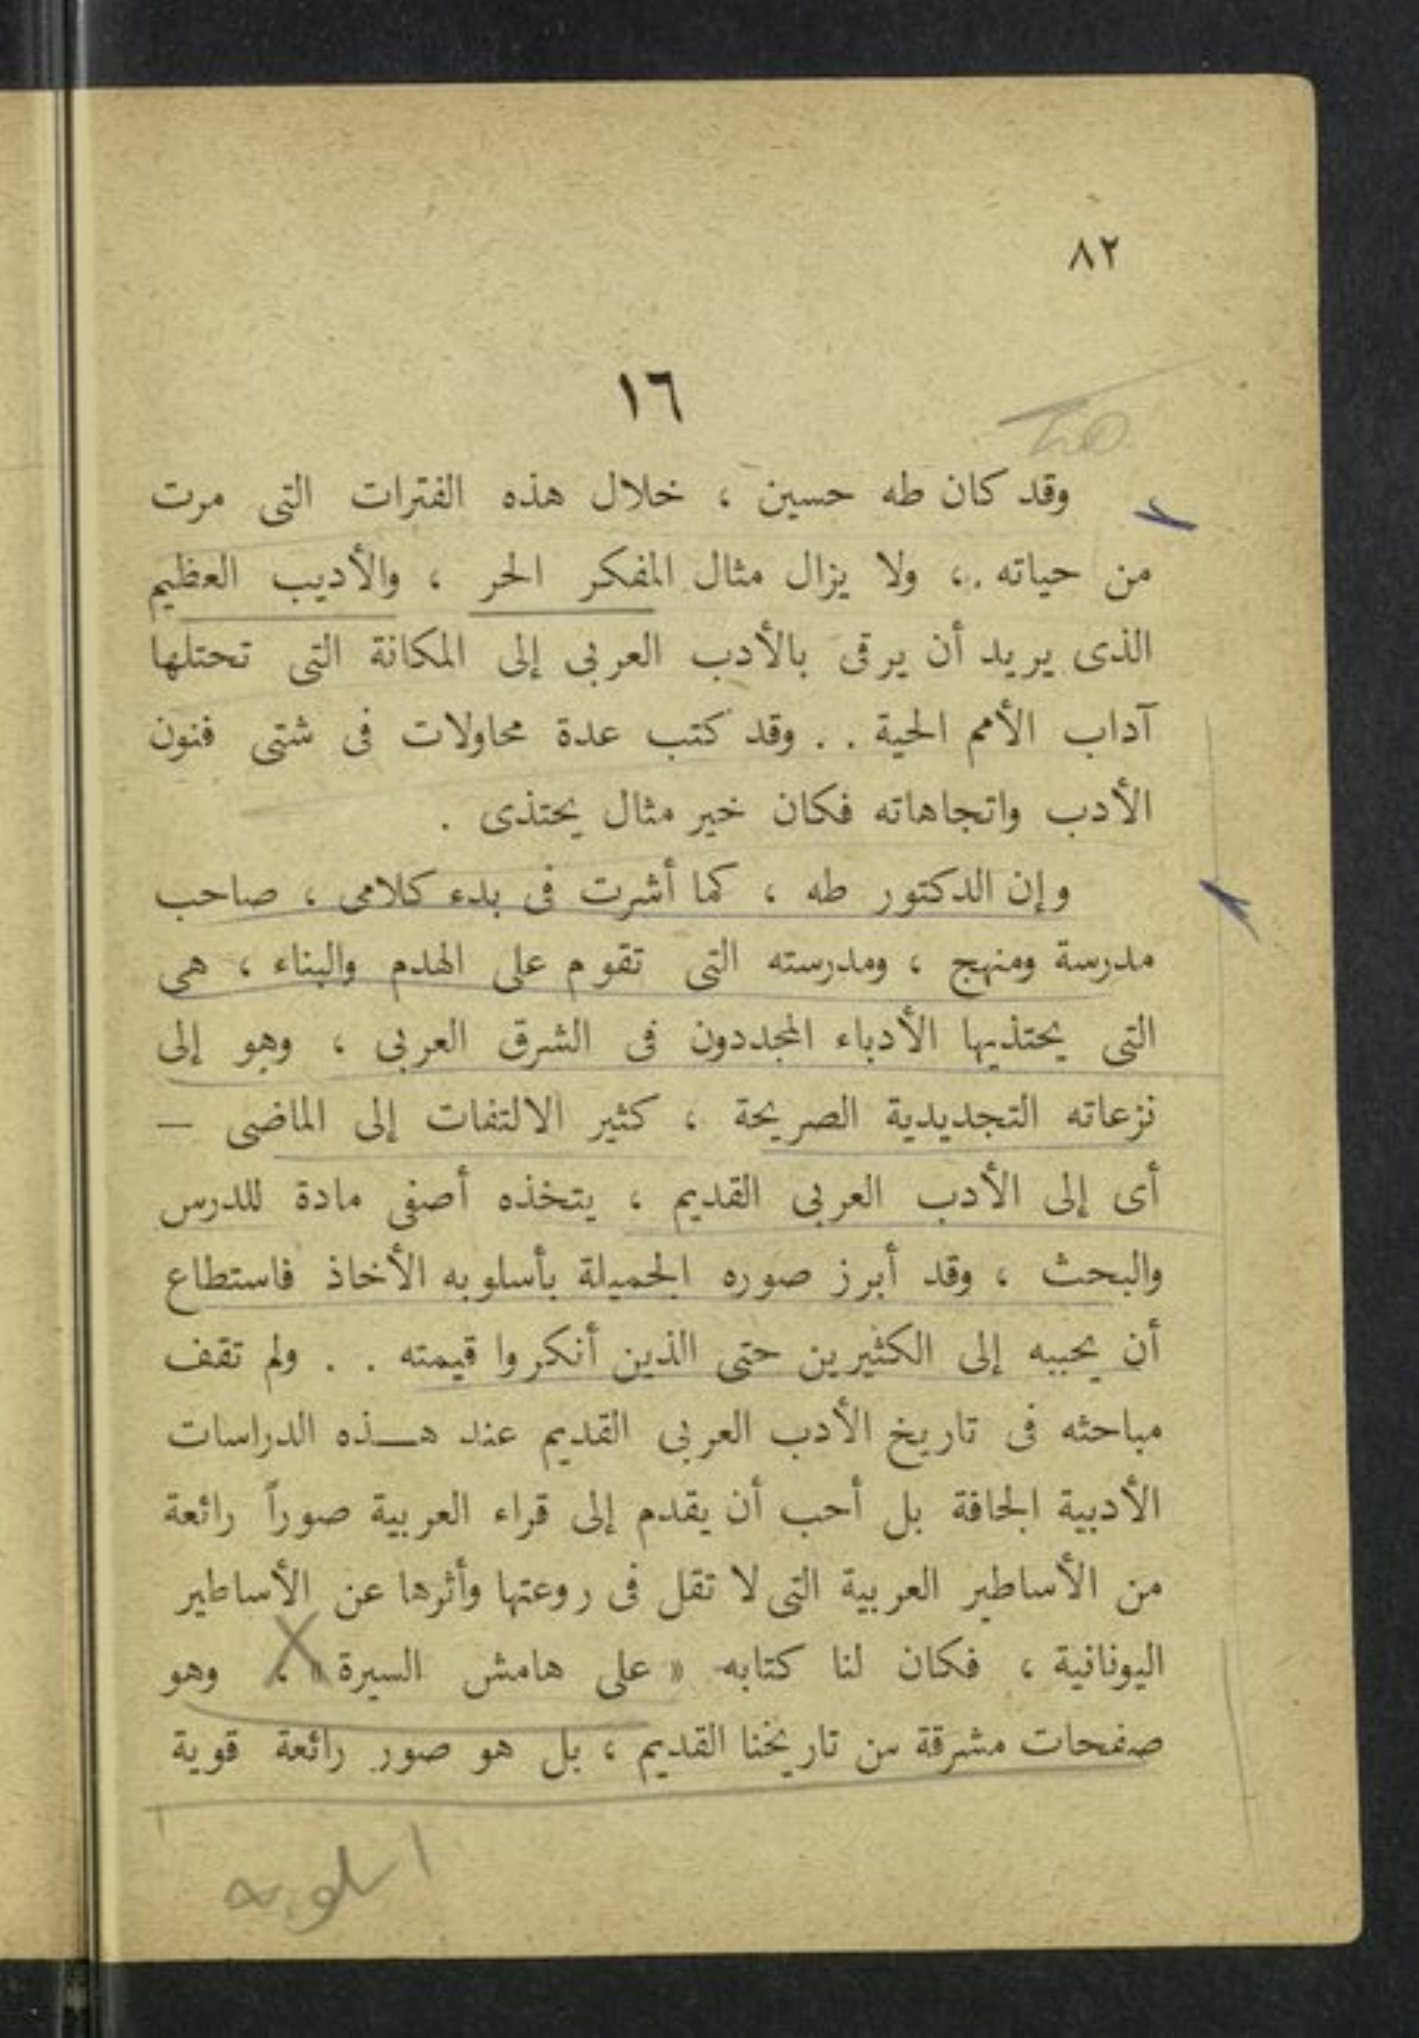 ٨٢
١٦
وقد كان طه حسين ، خلال هذه الفترات التى مرت
من حياته ، ولا يزال مثال المفكر الحر ، والأديب العظيم
الذى يريد أن يرقى بالأدب العربى إلى المكانة التى تحتلها
آداب الأمم الحية . . وقد كتب عدة محاولات فى شتى فنون
الأدب واتجاهاته فكان خير مثال يحتذى .
وإن الدكتور طه ، كما أشرت فى بدء كلامى ، صاحب
مدرسة ومنهج ، ومدرسته التى تقوم على الهدم والبناء ، هى
التى يحتذيها الأدباء المجددون فى الشرق العربى ، وهو إلى
نزعاته التجديدية الصريحة ، كثير الالتفات إلى الماضى —
أى إلى الأدب العربى القديم ، يتخذه أصفى مادة للدرس
والبحث ، وقد أبرز صوره الجميلة بأسلوبه الأخاذ فاستطاع
أن يحببه إلى الكثيرين حتى الذين أنكروا قيمته . . ولم تقف
مباحثه فى تاريخ الأدب العربى القديم عند هـذه الدراسات
الأدبية الجافة بل أحب أن يقدم إلى قراء العربية صوراً رائعة
من الأساطير العربية التى لا تقل فى روعتها وأثرها عن الأساطير
اليونانية ، فكان لنا كتابه « على هامش السيرة » ، وهو
صفحات مشرقة من تاريخنا القديم ، بل هو صور رائعة قوية
اسلوبه